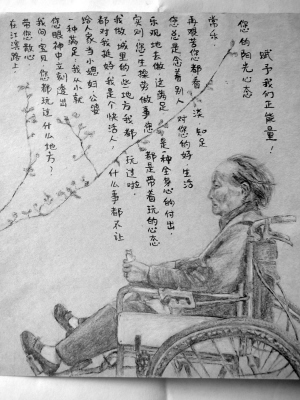 在江滨路上
带您散心
我问:宝贝.您都玩过什么地方?
您眼神中立刻透出
一种满足,我从小就
给人家当小媳妇公婆
都对我挺好我是个快活人!什么事都不让
我做.城里的一些地方我都玩过啦.
实则您一生操劳做事您都是带着玩的心态
乐观地去做 这满足是一种全身心的付出.
您总是念着别人对您的好 生活
再艰苦您都看淡 知足
常乐.
您的阳光心态
赋予我们正能量!